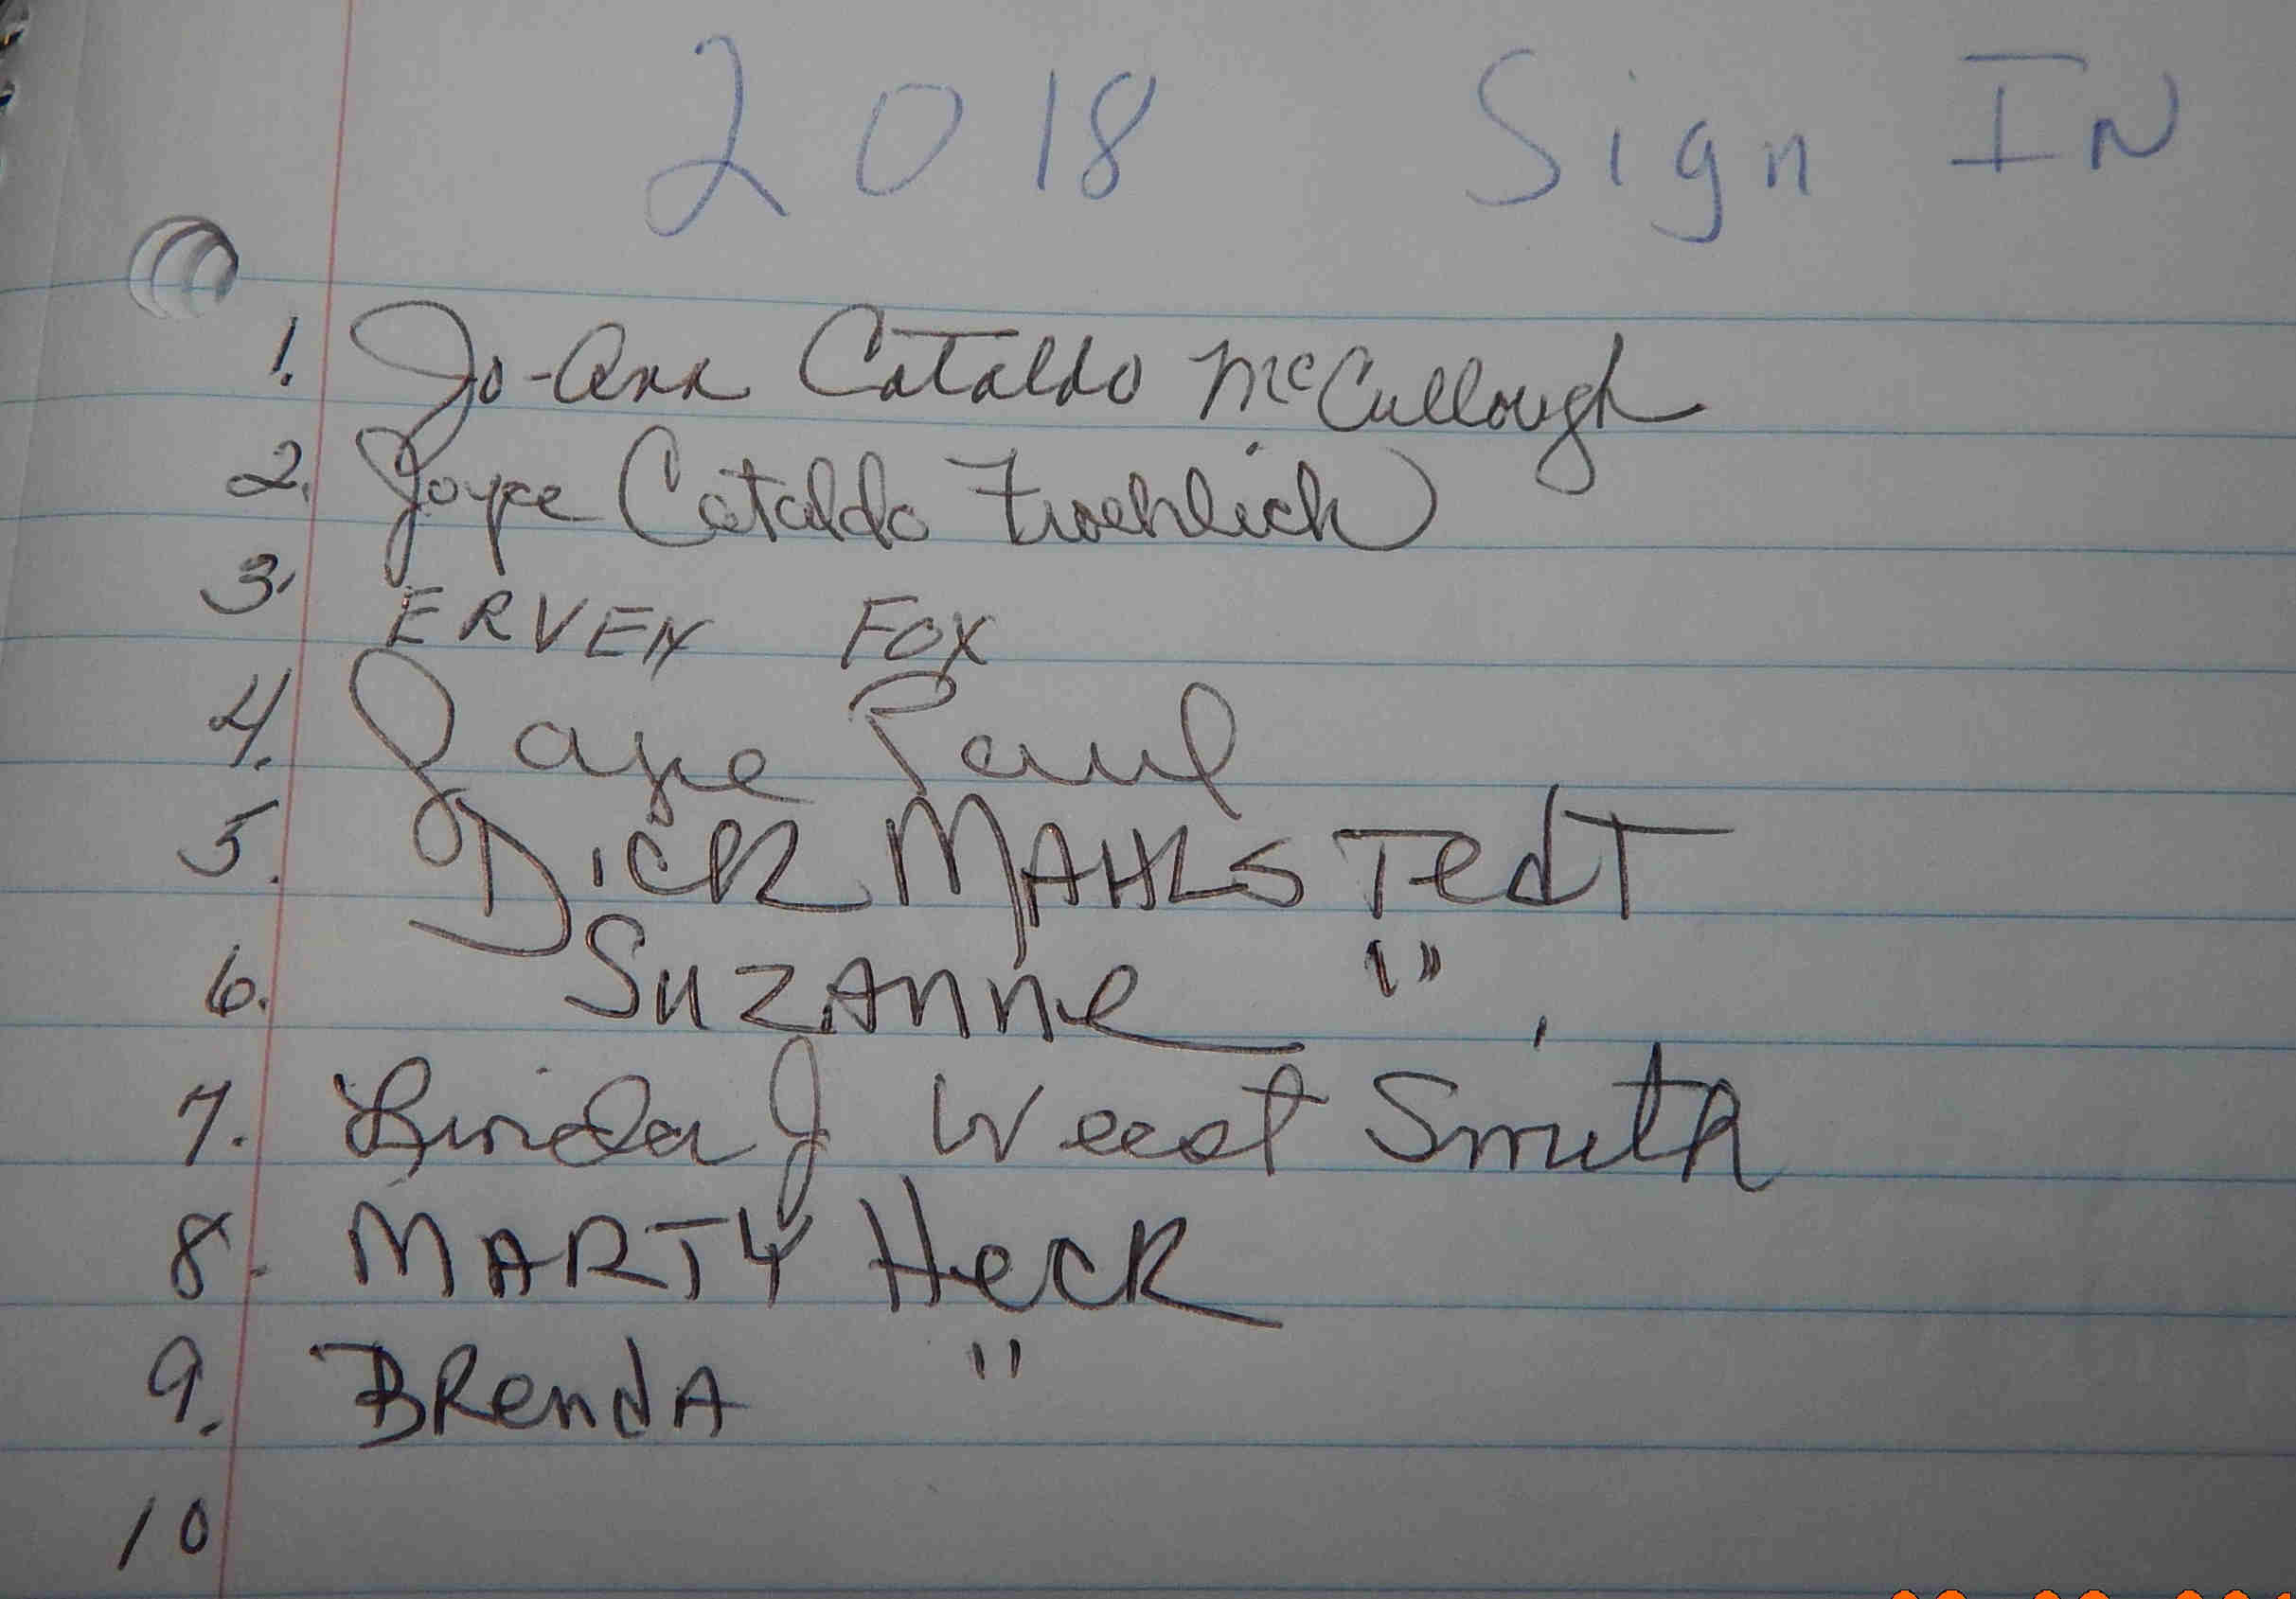 2018 Sign IN
1. Jo-Ann Cataldo McCullough
2. Joyce Cataldo Froehlich
3. ERVEN FOX
4. Jaye Paul
5. DICK MAHLSTedT
6. SuZAnne "
7. Linda J Weest Smith
8. MARTY HecK
9. BRendA "
10